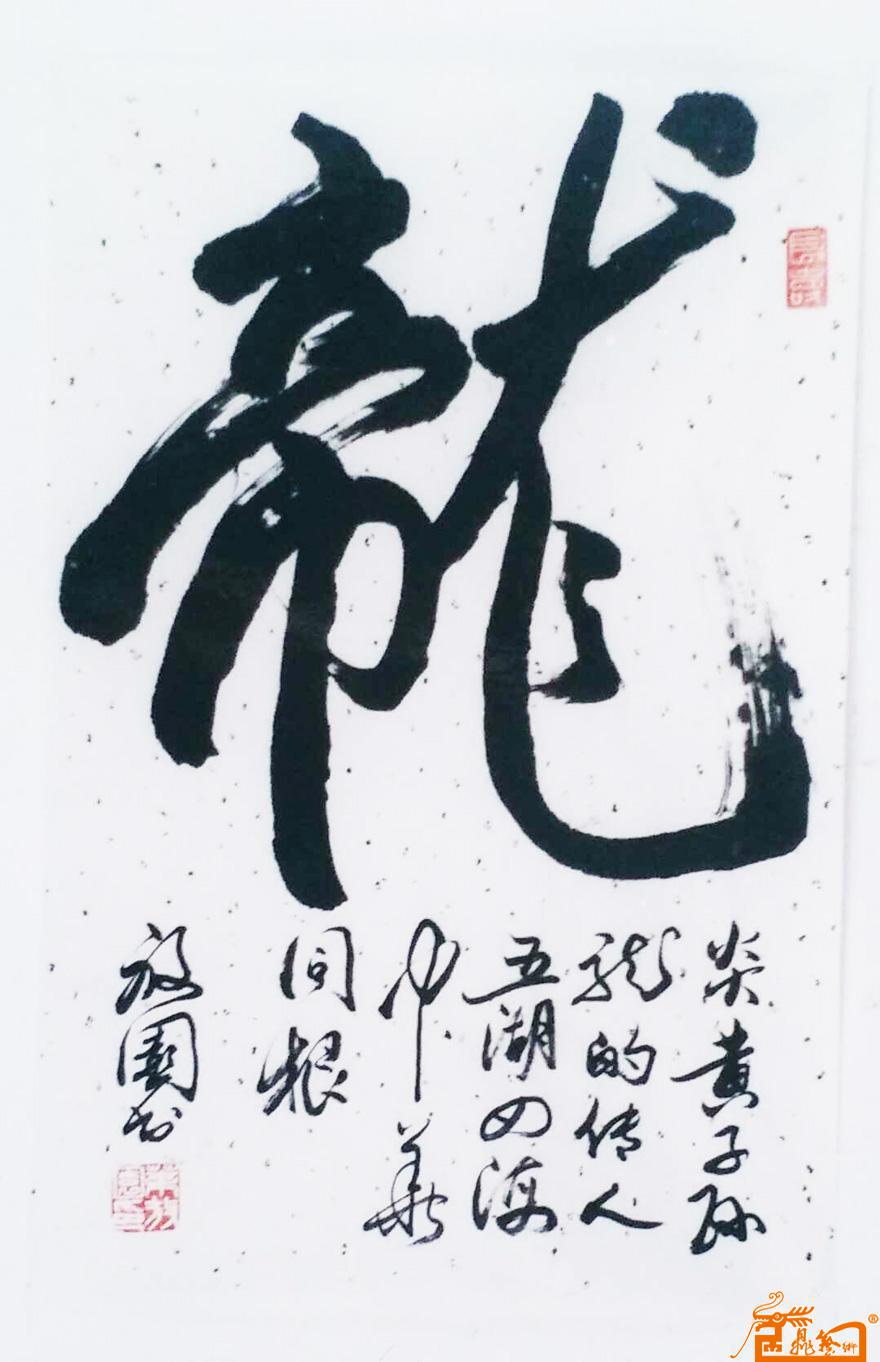 龍
炎黄子孙
龙的传人
五湖四海
中华
同根
放园书